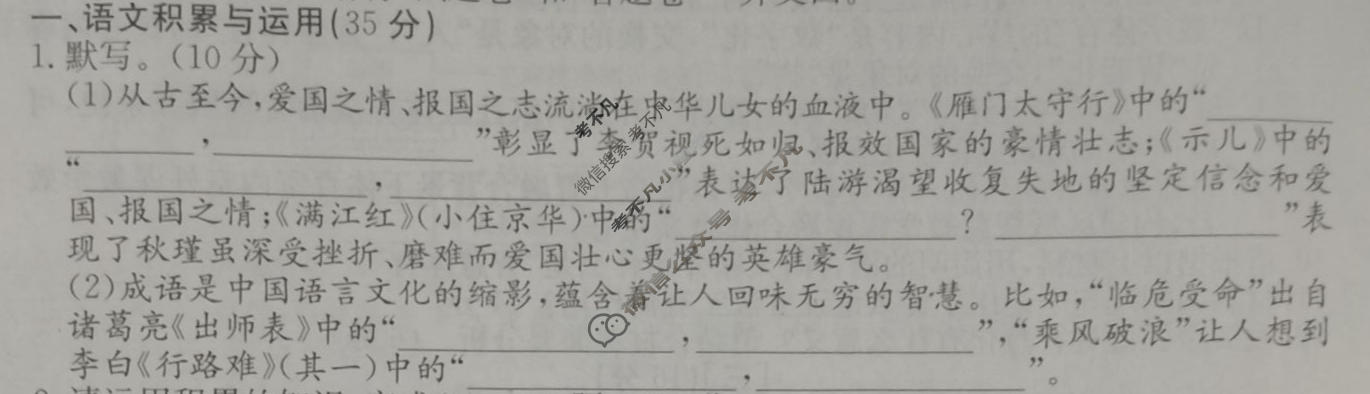 一、语文积累与运用(35分)
1. 默写。(10分)
(1)从古至今,爱国之情、报国之志流淌在中华儿女的血液中。《雁门太守行》中的“
,”彰显了李贺视死如归、报效国家的豪情壮志;《示儿》中的
“,”表达了陆游渴望收复失地的坚定信念和爱
国、报国之情;《满江红》(小住京华)中的“?”表
现了秋瑾虽深受挫折、磨难而爱国壮心更坚的英雄豪气。
(2)成语是中国语言文化的缩影,蕴含着让人回味无穷的智慧。比如,“临危受命”出自
诸葛亮《出师表》中的“,”,“乘风破浪”让人想到
李白《行路难》(其一)中的“,”。
考不凡
微信搜索 考不凡
考不凡小